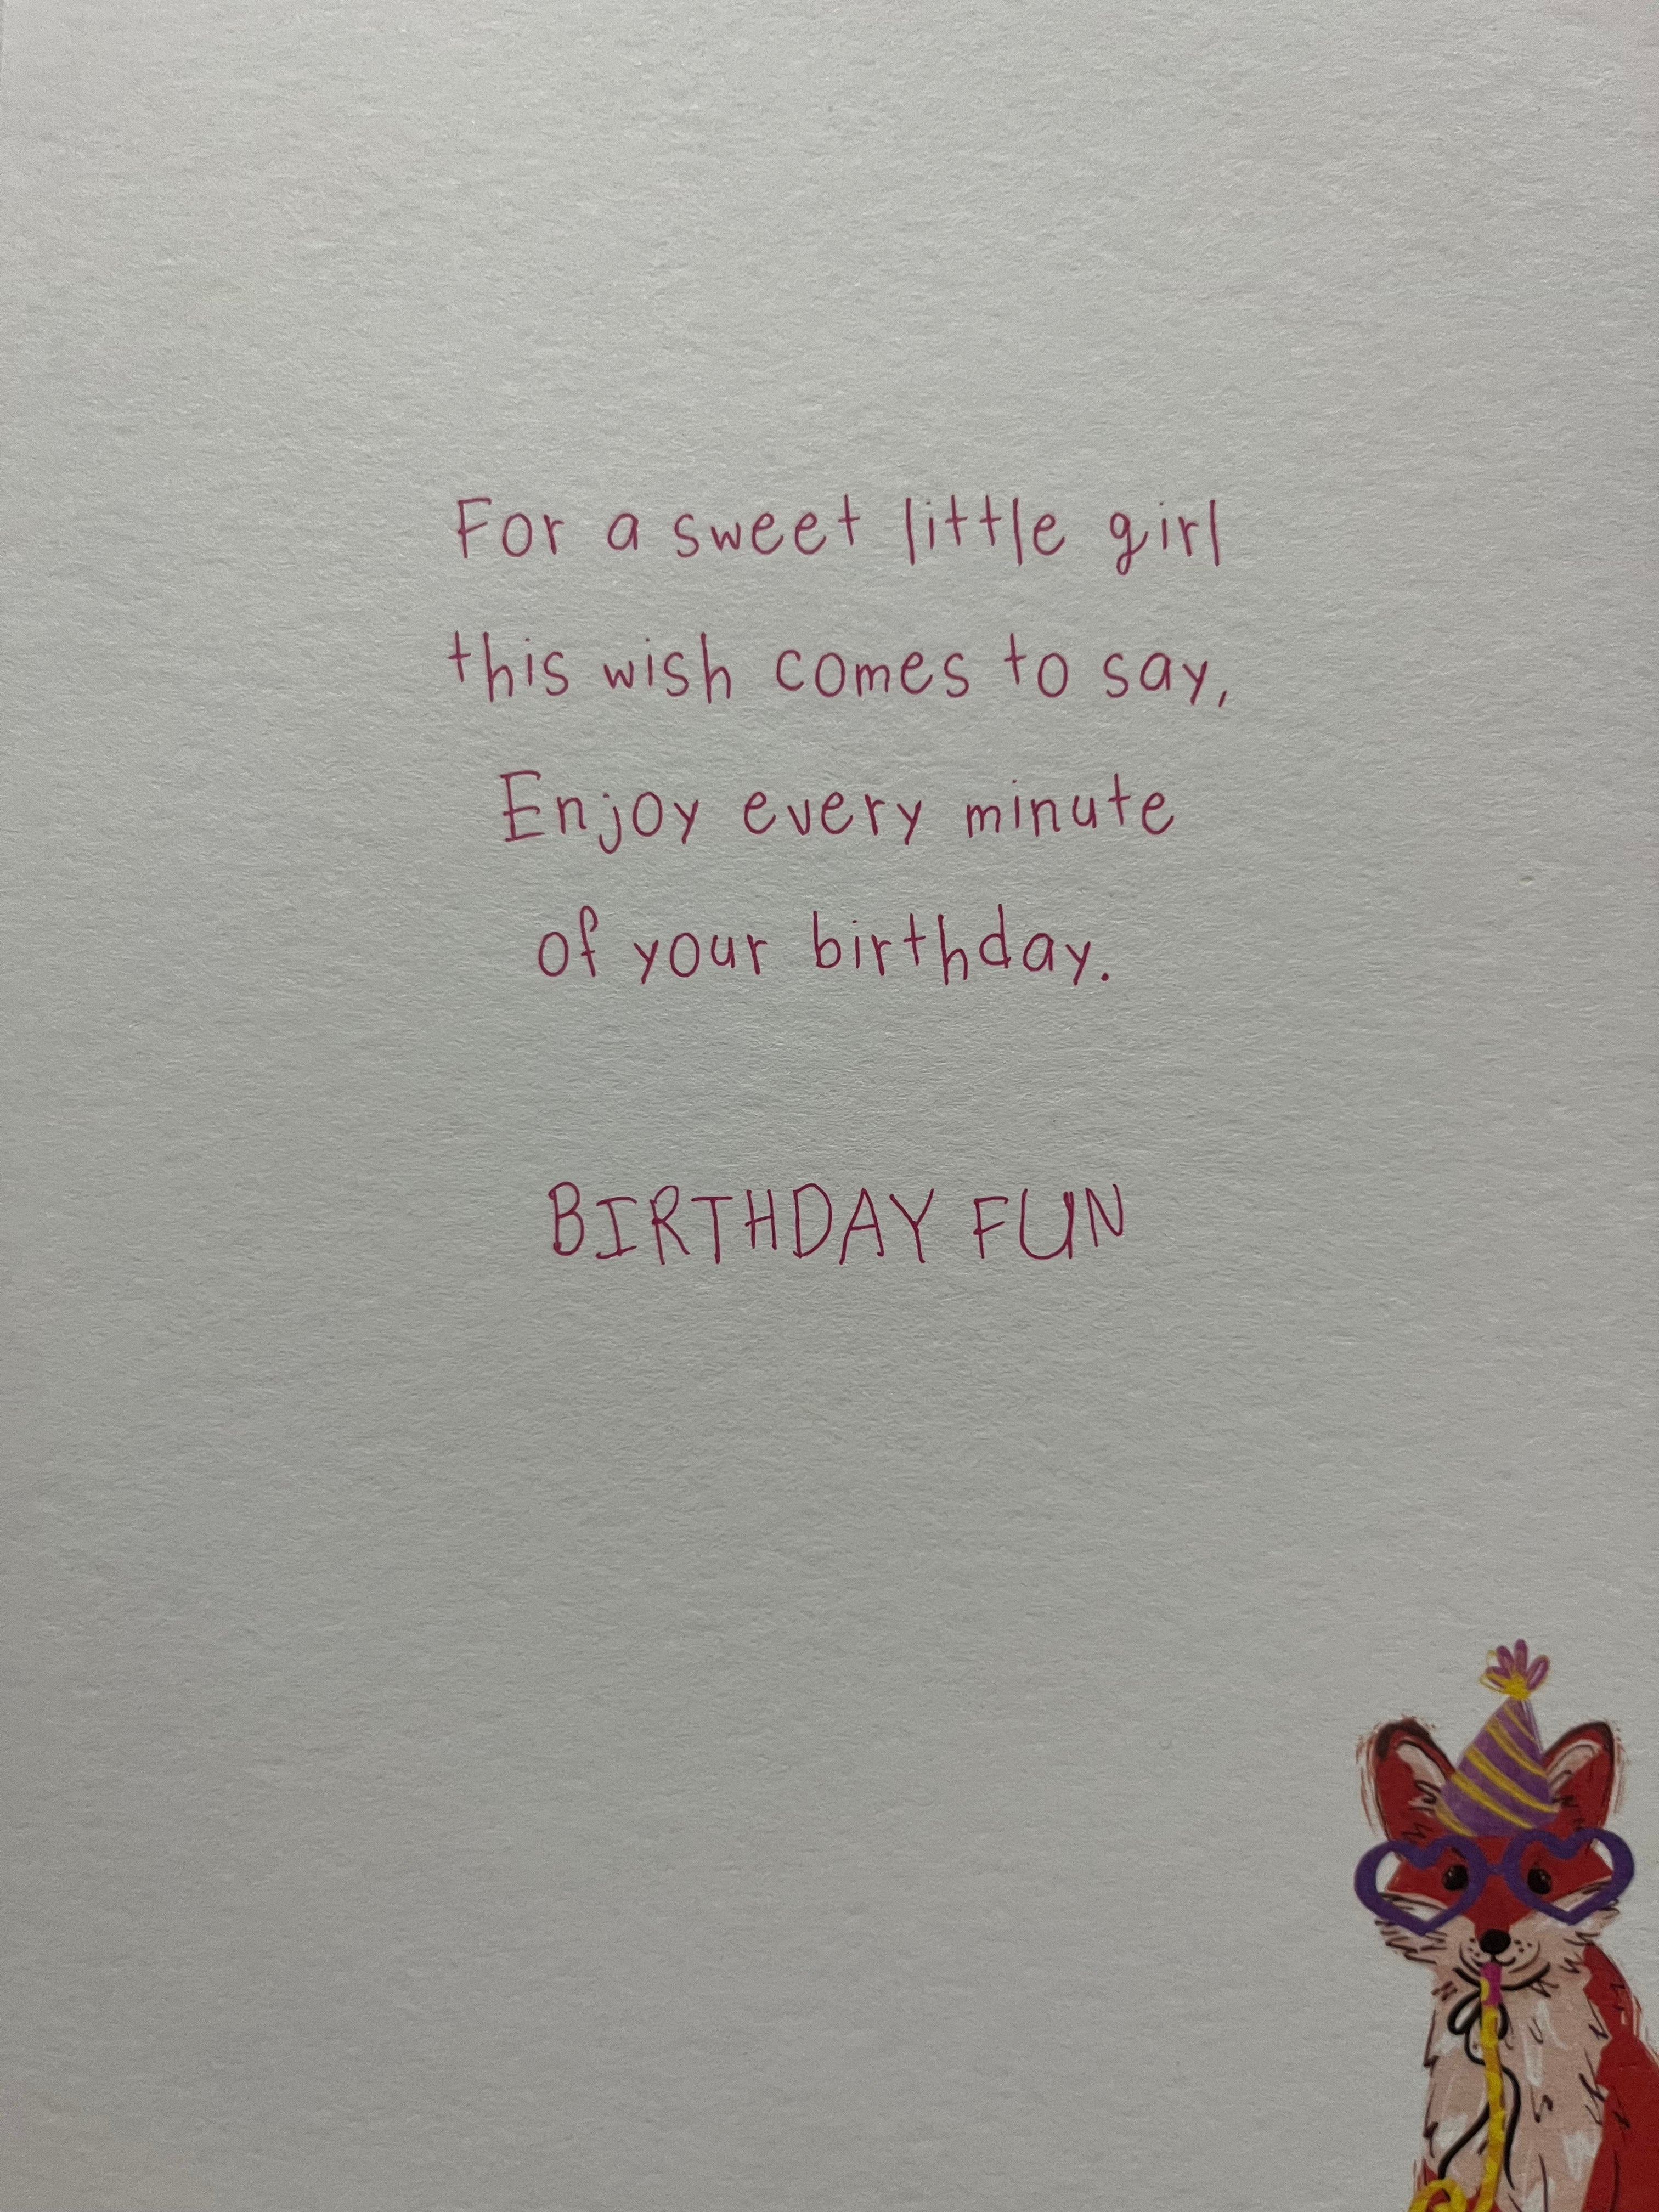 For a sweet little girl
this wish comes to say,
Enjoy every minute
of your birthday.
BIRTHDAY FUN